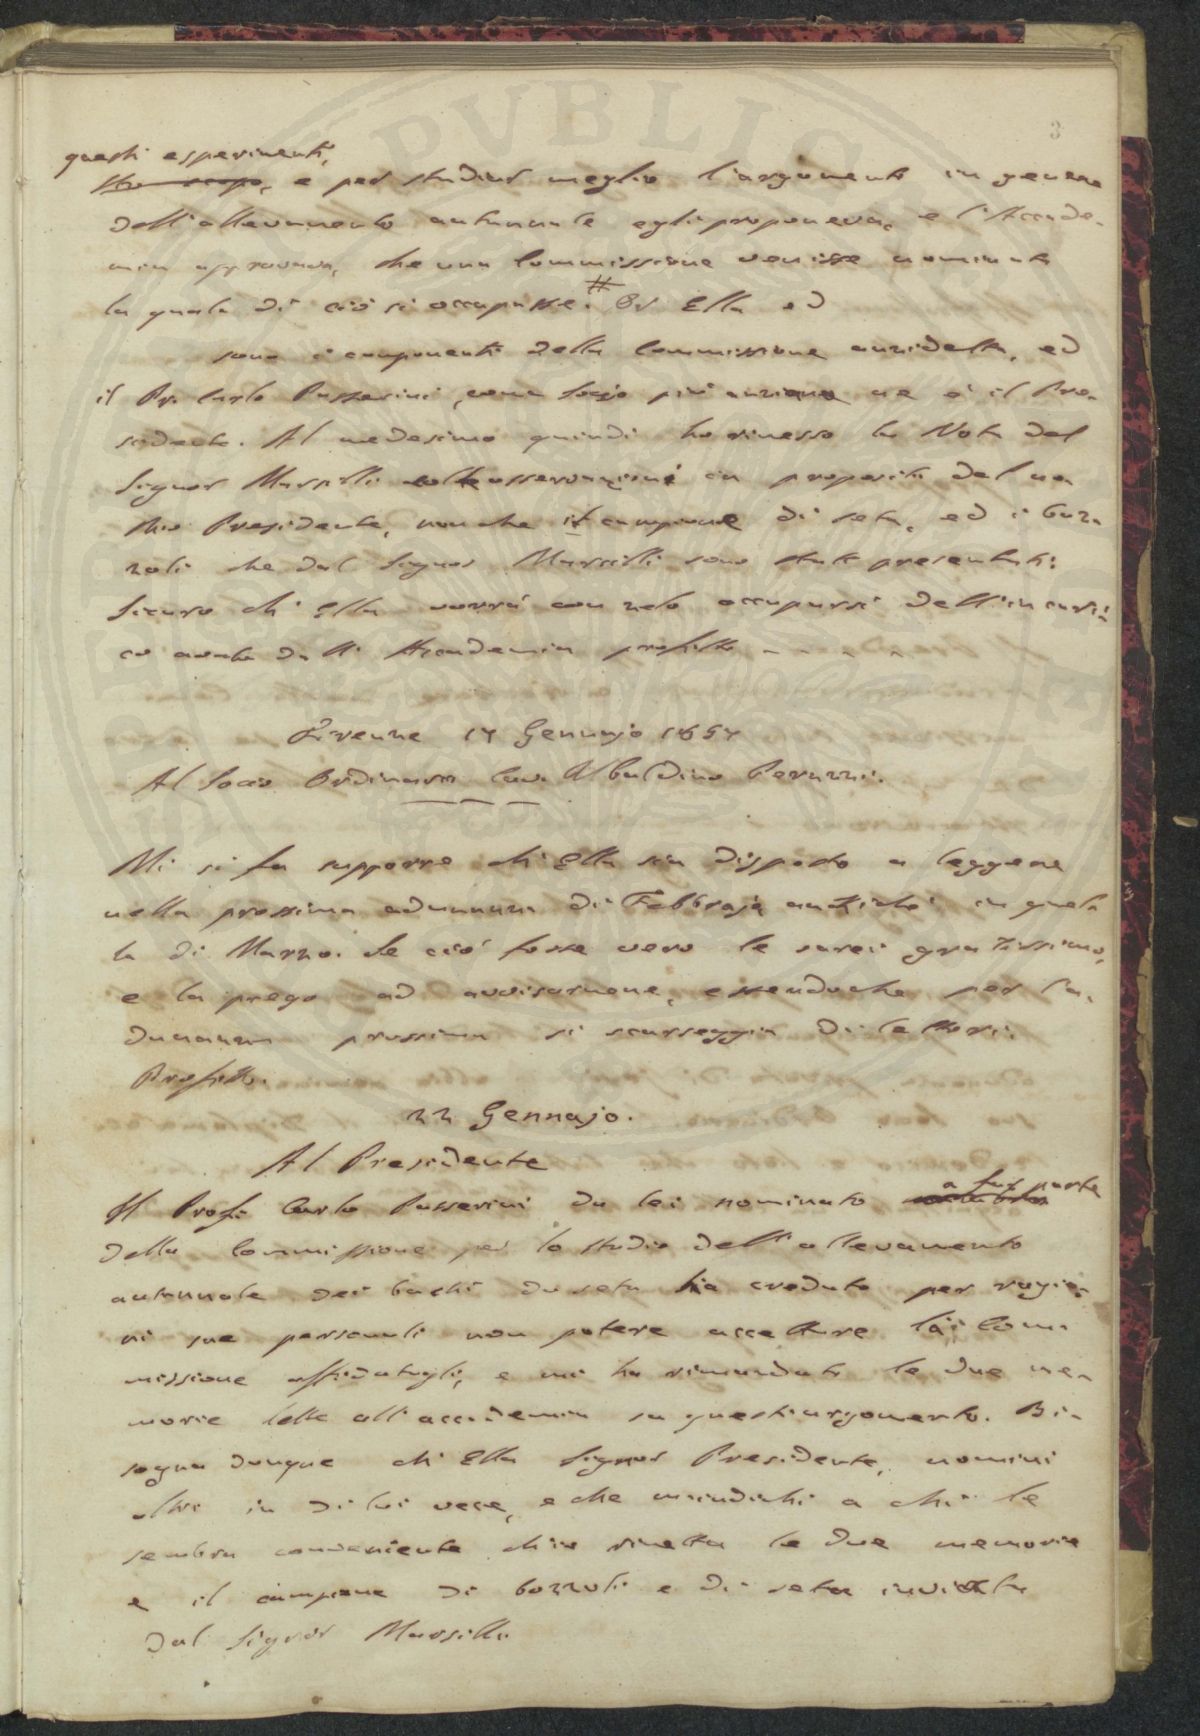 3
questi esperimenti,
e per studiar meglio l'argomento in genere
dell'allevamento autunnale egli proponeva, e l'Accade-
mia approvava, che una Commissione venisse nominata
la quale di ciò si occupasse. # Ella ed
sono i componenti della Commissione anzidetta, ed
il Pr. Carlo Passerini come Socio più anziano ne è il Pre-
sidente. Al medesimo quindi ho rimesso la Nota del
Signor Marsilli colle osservazioni in proposito del no-
stro Presidente, nonche il campione di seta, ed i boz-
zoli che dal Signor Marsilli sono stati presentati.
Sicuro ch'Ella vorrà con zelo occuparsi dell'incari-
co avuto dall' Accademia profitto - - - -
Firenze 17 Gennajo 1857
Al Socio Ordinario Cav. Ubaldino Peruzzi.
Mi si fa supporre ch'Ella sia disposto a leggere
nella prossima adunanza di Febbrajo anzichè in quel-
la di Marzo. Se ciò fosse vero le sarei gratissimo,
e la prego ad avvisarmene, essendoche per l'a-
dunanza prossima si scarseggia di lettori.
Profitto.
22 Gennajo.
Al Presidente
Il Prof. Carlo Passerini da lei nominato a far parte
della Commissione per lo studio dell'allevamento
autunnale dei bachi da seta ha creduto per ragio-
ni sue personali non potere accettare la Com-
missione affidatagli, e mi ha rimandate le due me-
morie lette all'accademia su quest'argomento. Bi-
sogna dunque ch'Ella Signor Presidente, nomini
altri in di lui vece, e che m'indichi a chi le
sembra conveniente ch'io rimetta le due memorie
e il campione di bozzoli e di seta inviato
dal Signor Marsilli